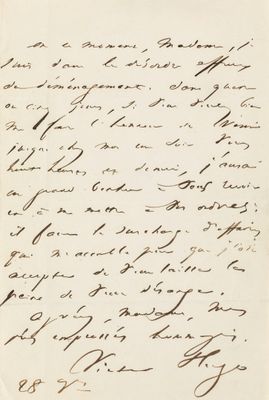 en ce moment, Madame, je
suis dans le désordre affreux
du déménagement. Dans quatre
ou cinq jours, si vous voulez bien
me faire l'honneur de venir
jusque chez moi un soir vers
heures et demie, j'aurai
un grand bonheur à vous revoir
et à me mettre à vos ordres;
il faut la surcharge d'affaires
qui m'accable pour que j'ose
accepter de vous laisser la
peine de vous déranger.
Agréez, madame, mes
plus empressés hommages.
Victor Hugo
28